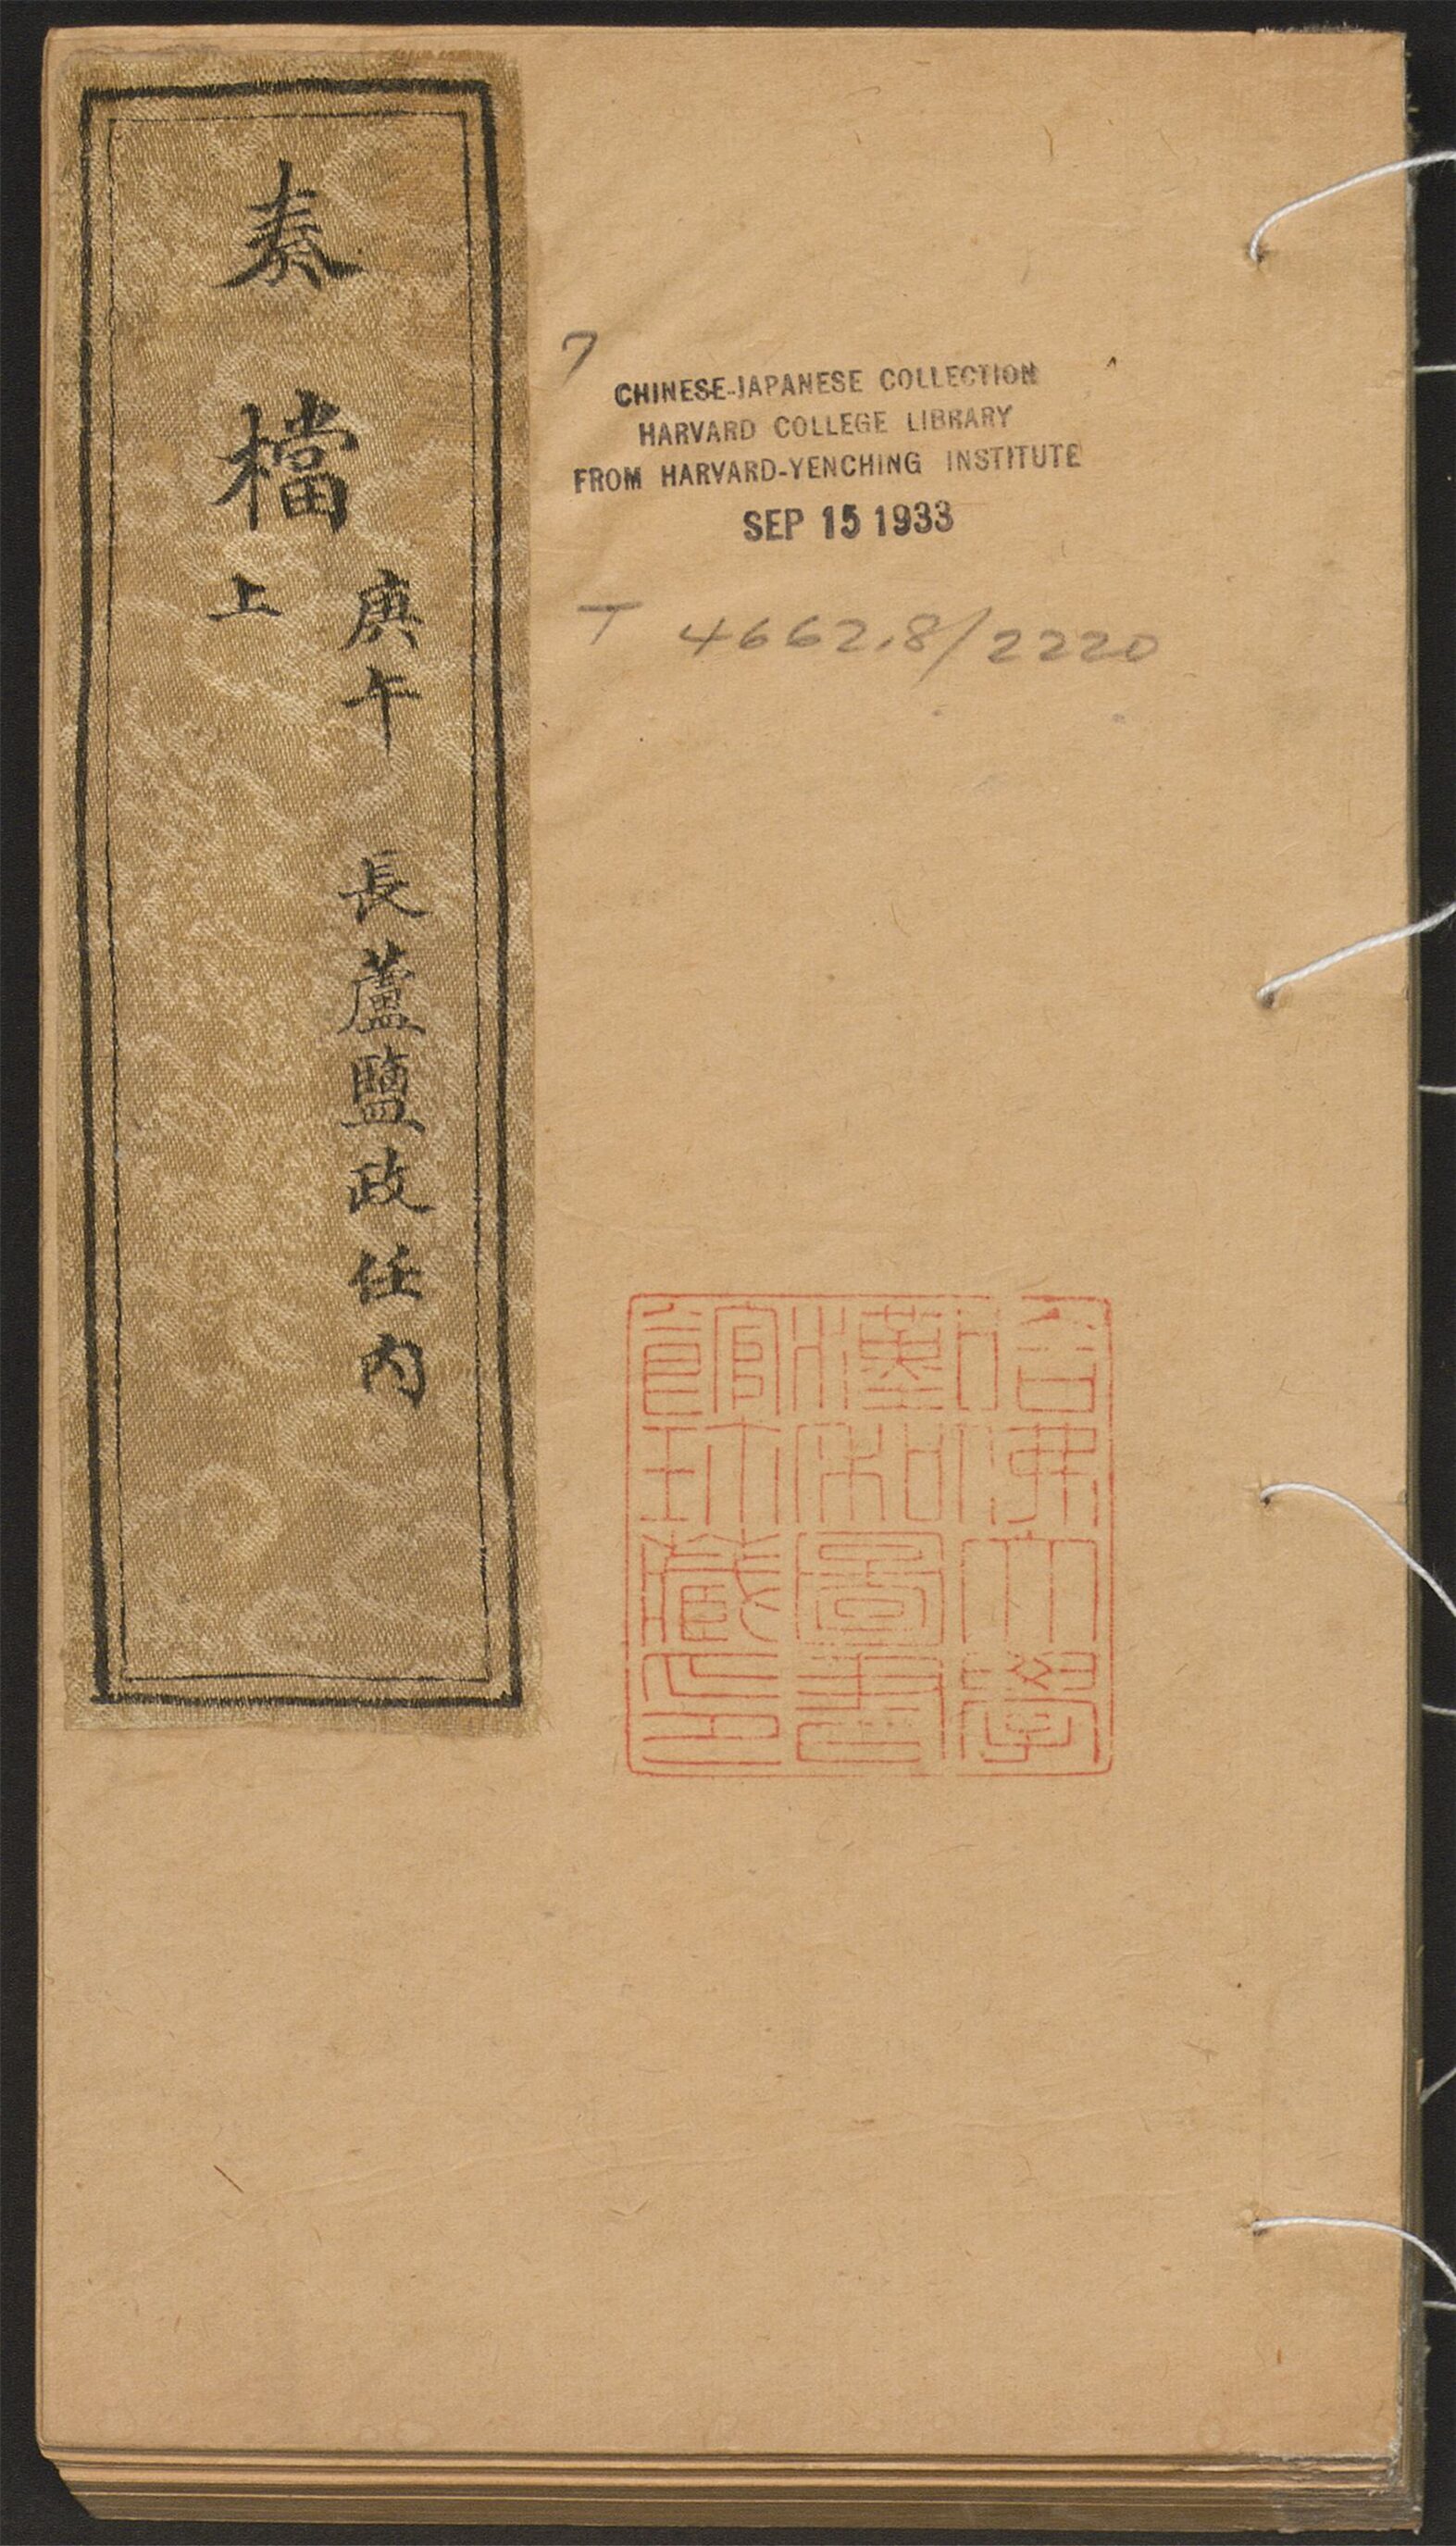 奏檔
庚午 長蘆鹽政任內
上
7
CHINESE-JAPANESE COLLECTION
HARVARD COLLEGE LIBRARY
FROM HARVARD-YENCHING INSTITUTE
SEP 15 1933
T 4662.8/2220
哈佛大學
漢和圖書
館珍藏印